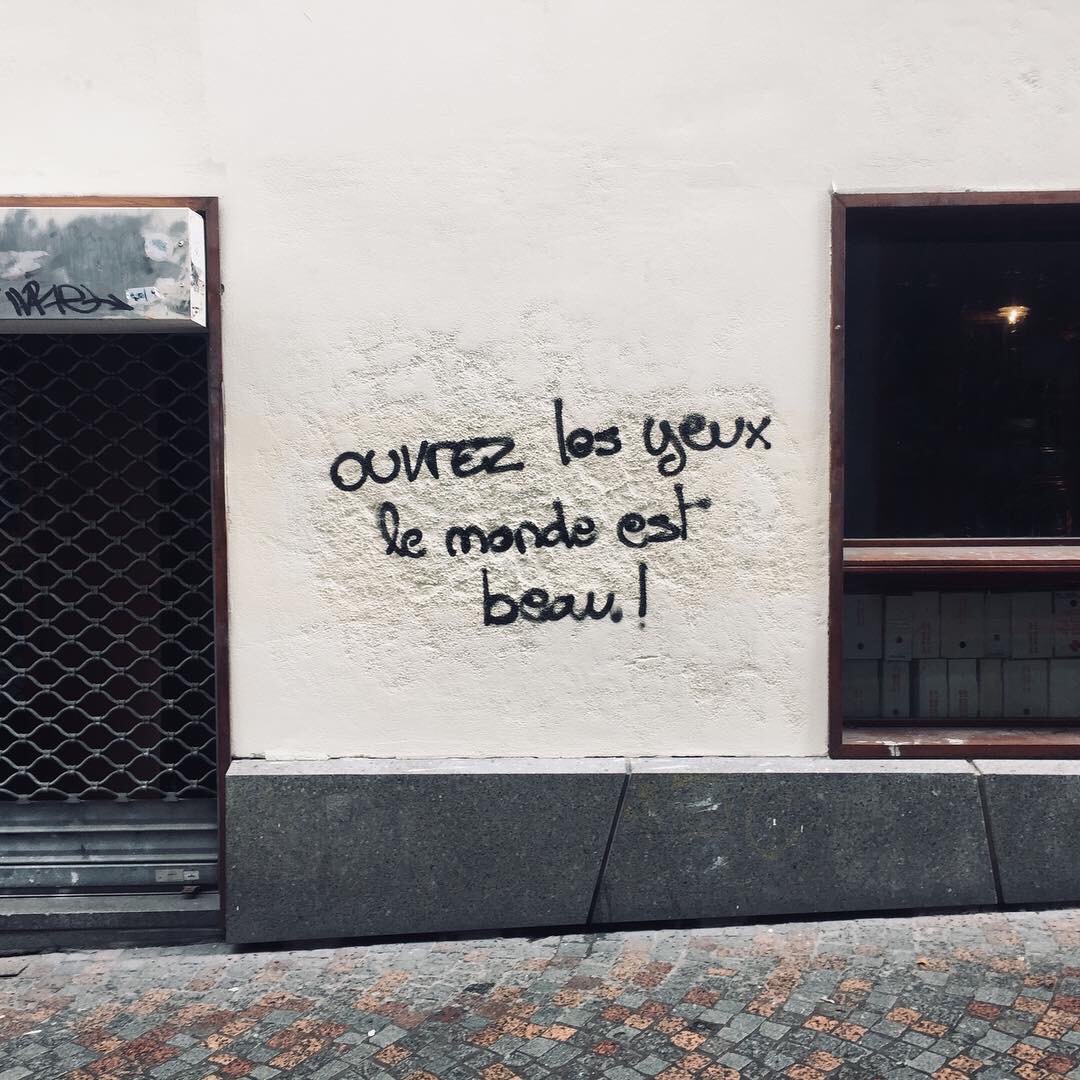 ouvrez les yeux
le monde est
beau.!